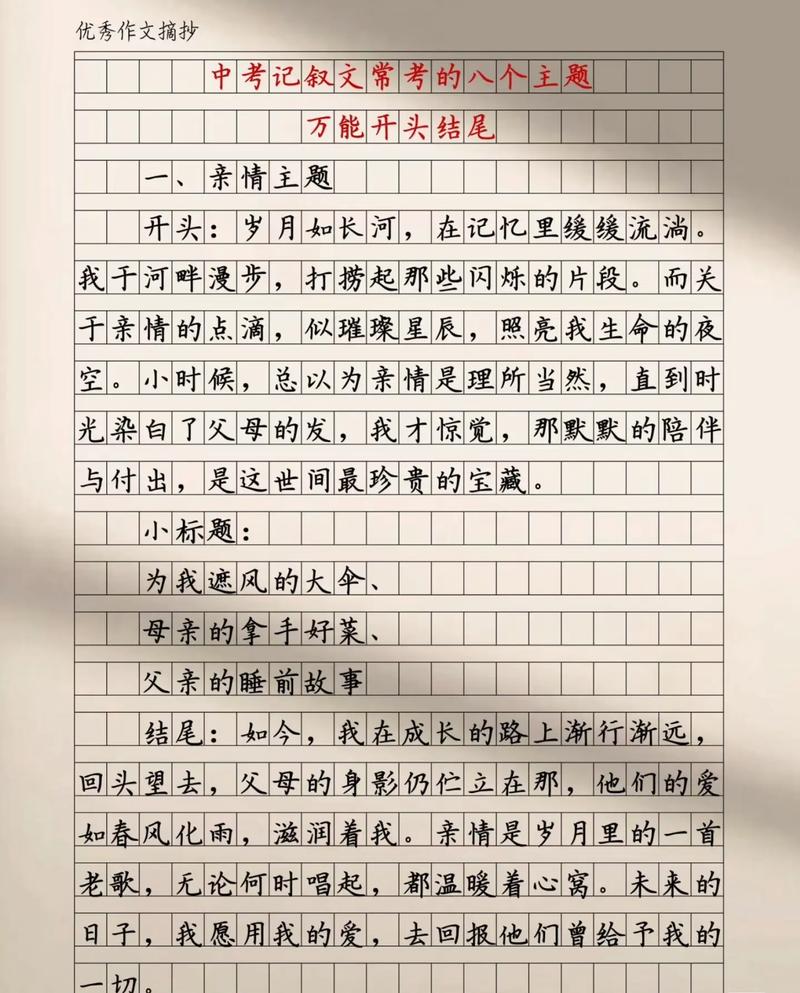 优秀作文摘抄
中考记叙文常考的八个主题
万能开头结尾
一、亲情主题
开头：岁月如长河，在记忆里缓缓流淌。
我于河畔漫步，打捞起那些闪烁的片段。而关
于亲情的点滴，似璀璨星辰，照亮我生命的夜
空。小时候，总以为亲情是理所当然，直到时
光染白了父母的发，我才惊觉，那默默的陪伴
与付出，是这世间最珍贵的宝藏。
小标题：
为我遮风的大伞、
母亲的拿手好菜、
父亲的睡前故事
结尾：如今，我在成长的路上渐行渐远，
回头望去，父母的身影仍伫立在那，他们的爱
如春风化雨，滋润着我。亲情是岁月里的一首
老歌，无论何时唱起，都温暖着心窝。未来的
日子，我愿用我的爱，去回报他们曾给予我的
一切。